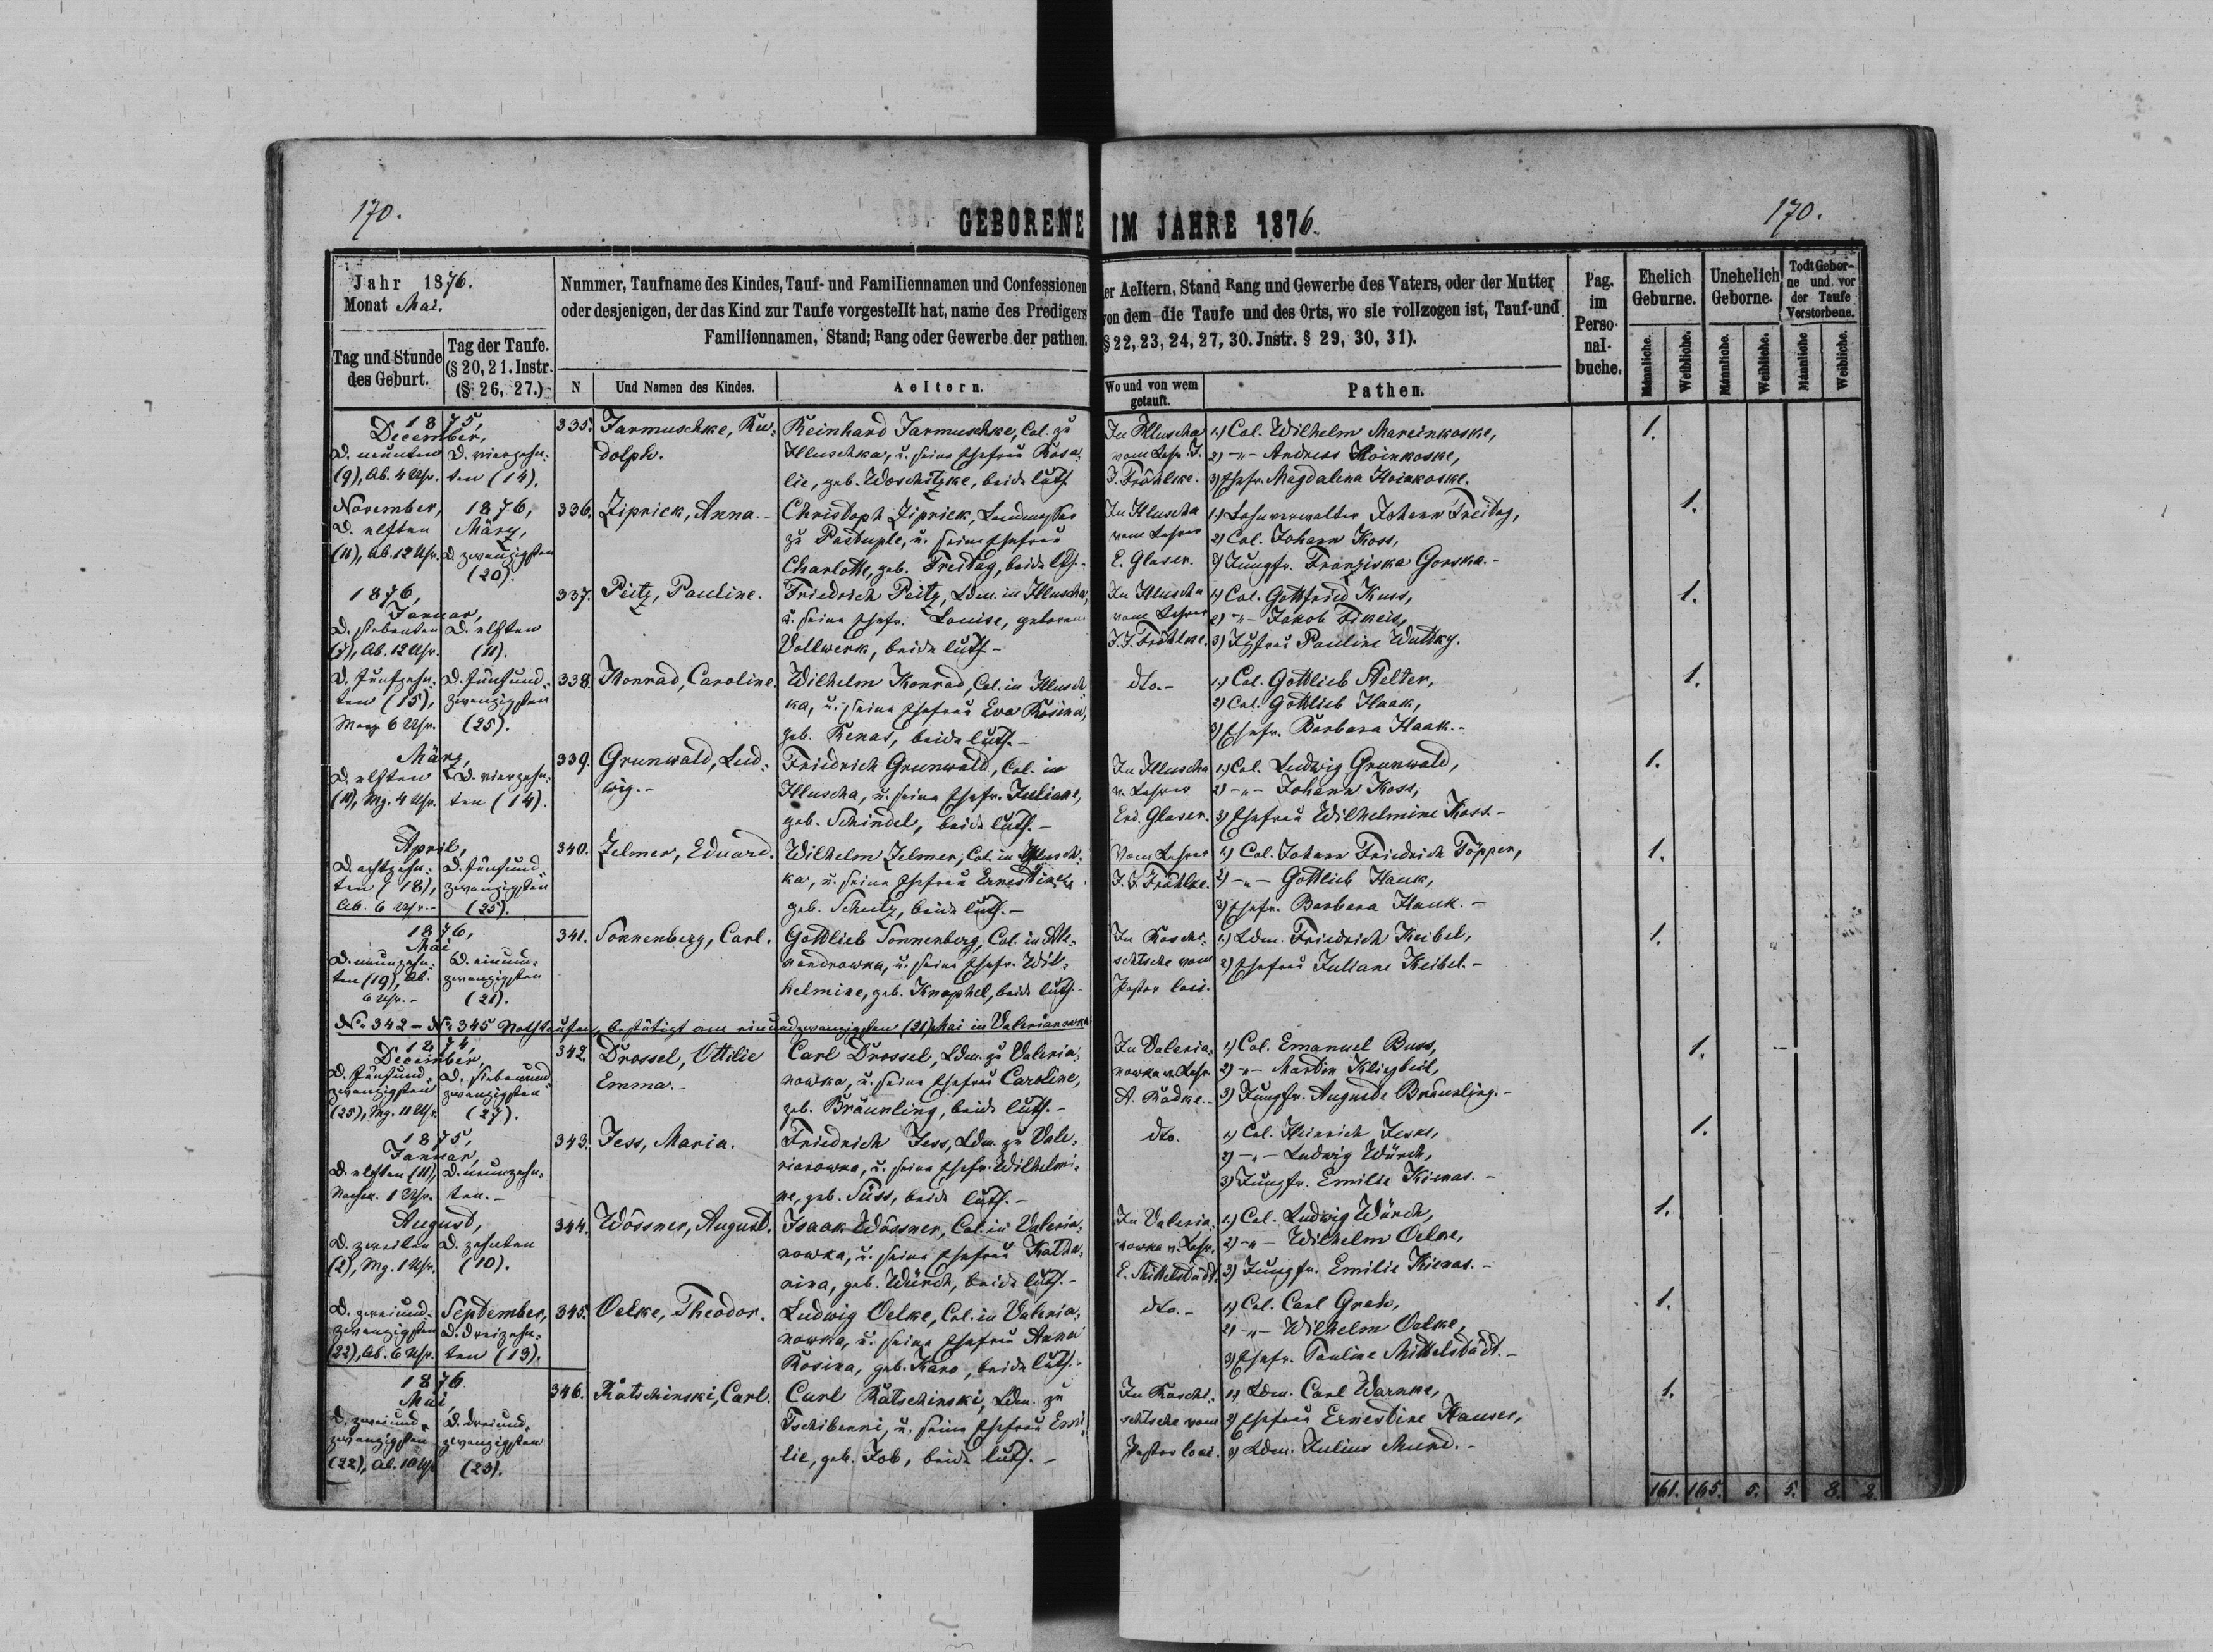 170.
170.
GEBORENE IM JAHRE 1876.
Jahr 1876.
Monat Mai.
Tag und Stunde des Geburt.
Tag der Taufe.
(§ 20, 21. Instr.
(§ 26, 27.)
Nummer, Taufname des Kindes, Tauf- und Familiennamen und Confessionen
oder desjenigen, der das Kind zur Taufe vorgestellt hat, name des Predigers
Familiennamen, Stand; Rang oder Gewerbe der pathen.
N
Und Namen des Kindes.
Aeltern.
er Aeltern, Stand Rang und Gewerbe des Vaters, oder der Mutter
von dem die Taufe und des Orts, wo sie vollzogen ist, Tauf-und
§ 22, 23, 24, 27, 30. Jnstr. § 29, 30, 31).
Wo und von wem getauft.
Pathen.
Pag. im Perso- nal- buche.
Ehelich Geburne.
Unehelich Geborne.
Todt Gebor- ne und vor der Taufe Verstorbene.
Männliche.
Weibliche.
Männliche.
Weibliche.
Männliche
Weibliche.
1875,
December,
D. neunten
(9), Ab. 4 Uhr.
D. vierzehn-
ten (14).
335.
Jarmuschke, Ru-
dolph.
Reinhard Jarmuschke, Col. zu
Illuschka, u. seine Ehefrau Rosa-
lie, geb. Woschitzke, beide luth
In Illuscha
vom Lehr. J.
J. Fröhlke.
1.) Col. Wilhelm Mareinkoske,
2) -"- Andreas Hoinkoske,
3) Ehefr. Magdalena Hoinkoske.
1.
November,
D. elften
(11), Ab. 12 Uhr.
1876,
März,
D. zwanzigsten
(20).
336.
Ziprick, Anna.-
Christoph Ziprick, Landmesser
zu Pastuple, u. seine Ehefrau
Charlotte, geb. Freitag, beide lth.-
In Illuscha
vom Lehrer
E. Glaser.
1.) Lohnverwalter Johann Freitag,
2) Col. Johann Koss,
3) Jungfr. Franziska Gorska.-
1.
1876,
Januar,
D. siebenten
(7), Ab. 12 Uhr.
D. elften
(11).
337.
Peitz, Pauline.
Friedrich Peitz, Ldm. in Illuscha,
u. seine Ehefr. Louise, geborene
Vollwerk, beide luth-
In Illuscha
vom Lehrer
J. J. Fröhlke.
1.) Col. Gottfried Kuss,
2) -"- Jakob Fikeis,
3) Jgfrau Pauline Wuttky.
1.
D. fünfzehn-
ten (15),
Morg 6 Uhr.
D. fünfund-
zwanzigsten
(25).
338.
Konrad, Caroline.
Wilhelm Konrad, Col. in Illusch
ka, u. seine Ehefrau Eva Rosina,
geb. Renas, beide luth.-
dto.-
1.) Col. Gottlieb Stelter,
2) Col. Gottlieb Haak,
3) Ehefr. Barbara Haak.-
1.
März,
D. elften
(11), Mg. 4 Uhr.
D. vierzehn-
ten (14).
339.
Grunwald, Lud-
wig.-
Friedrich Grunwald, Col. in
Illuscha, u. seine Ehefr. Juliane,
geb. Schindel, beide luth.-
In Illuscha
v. Lehrer
Erd. Glaser.
1.) Col. Ludwig Grunwald,
2) -"- Johann Koss,
3) Ehefrau Wilhelmine Koss.-
1.
April,
D. achtzehn-
ten (18),
Ab. 6 Uhr.-
D. fünfund-
zwanzigsten
(25).
340.
Zelmer, Eduard.
Wilhelm Zelmer, Col. in Illusch-
ka, u. seine Ehefrau Ernestine,
geb. Schulz, beide luth.-
Vom Lehrer
J. J. Fröhlke.
1.) Col. Johann Friedrich Töpper,
2) -"- Gottlieb Hauk,
3) Ehefr. Barbara Hauk.-
1.
1876,
Mai
D. neunzehn-
ten (19), Ab.
6 Uhr.-
D. einund-
zwanzigsten
(21).
341.
Sonnenberg, Carl.
Gottlieb Sonnenberg, Col. in Ale-
xandrowka, u. seine Ehefr. Wil-
helmine, geb. Knaphel, beide luth.-
In Roschi-
schtsche vom
Pastor loci.
1.) Ldm. Friedrich Keibel,
2) Ehefrau Juliane Keibel.-
1.
No. 342 - No. 345 Nothtaufen, bestätigt am einundzwanzigsten (21) Mai in Valerianowka
1874,
December,
D. fünfund-
zwanzigsten
(25), Mg. 11 Uhr.
D. siebenund-
zwanzigsten
(27).
342.
Drossel, Ottilie
Emma.-
Carl Drossel, Ldm. zu Valeria-
nowka, u. seine Ehefrau Caroline,
geb. Bräunling, beide luth.-
In Valeria-
nowka v. Lehr.
A. Radke.-
1.) Col. Emanuel Buss,
2) -"- Martin Kliegbeil,
3) Jungfr. Auguste Bräunling.-
1.
1875,
Januar,
D. elften (11),
Nachm. 1 Uhr.
D. neunzehn-
ten.-
343.
Jess, Maria.
Friedrich Jess, Ldm. zu Vale-
rianowka, u. seine Ehefr. Wilhelmi-
ne, geb. Süss, beide luth.-
dto.
1.) Col. Heinrich Jesks,
2) -"- Ludwig Würch,
3) Jungfr. Emilie Kienas.-
1.
August,
D. zweiten
(2), Mg. 1 Uhr.
D. zehnten
(10).
344.
Wössner, August.
Isaak Wössner, Col. in Valeria-
nowka, u. seine Ehefrau Katha-
rina, geb. Würch, beide luth.-
In Valeria-
nowka v. Lehr.
E. Mittelstädt.
1.) Col. Ludwig Würch,
2) -"- Wilhelm Oelke,
3) Jungfr. Emilie Kienas.-
1.
D. zweiund-
zwanzigsten
(22), Ab. 6 Uhr.
September,
D. dreizehn-
ten (13).
345.
Oelke, Theodor.
Ludwig Oelke, Col. in Valeria-
nowka, u. seine Ehefrau Anna
Rosina, geb. Karo, beide luth.-
dto.-
1.) Col. Carl Greh,
2) -"- Wilhelm Oelke,
3) Ehefr. Pauline Mittelstädt.-
1.
1876.
Mai,
D. zweiund-
zwanzigsten
(22), Ab. 10 Uhr
D. dreiund-
zwanzigsten
(23).
346.
Ratschinski, Carl.
Carl Ratschinski, Ldm. zu
Tschibenni, u. seine Ehefrau Emi-
lie, geb. Job, beide luth.-
In Roschi-
schtsche vom
Pastor loci.
1.) Ldm. Carl Warnke,
2) Ehefrau Ernestine Hauser,
3) Ldm. Julius Mund.-
1.
161. 165. 5. 5. 8. 2.